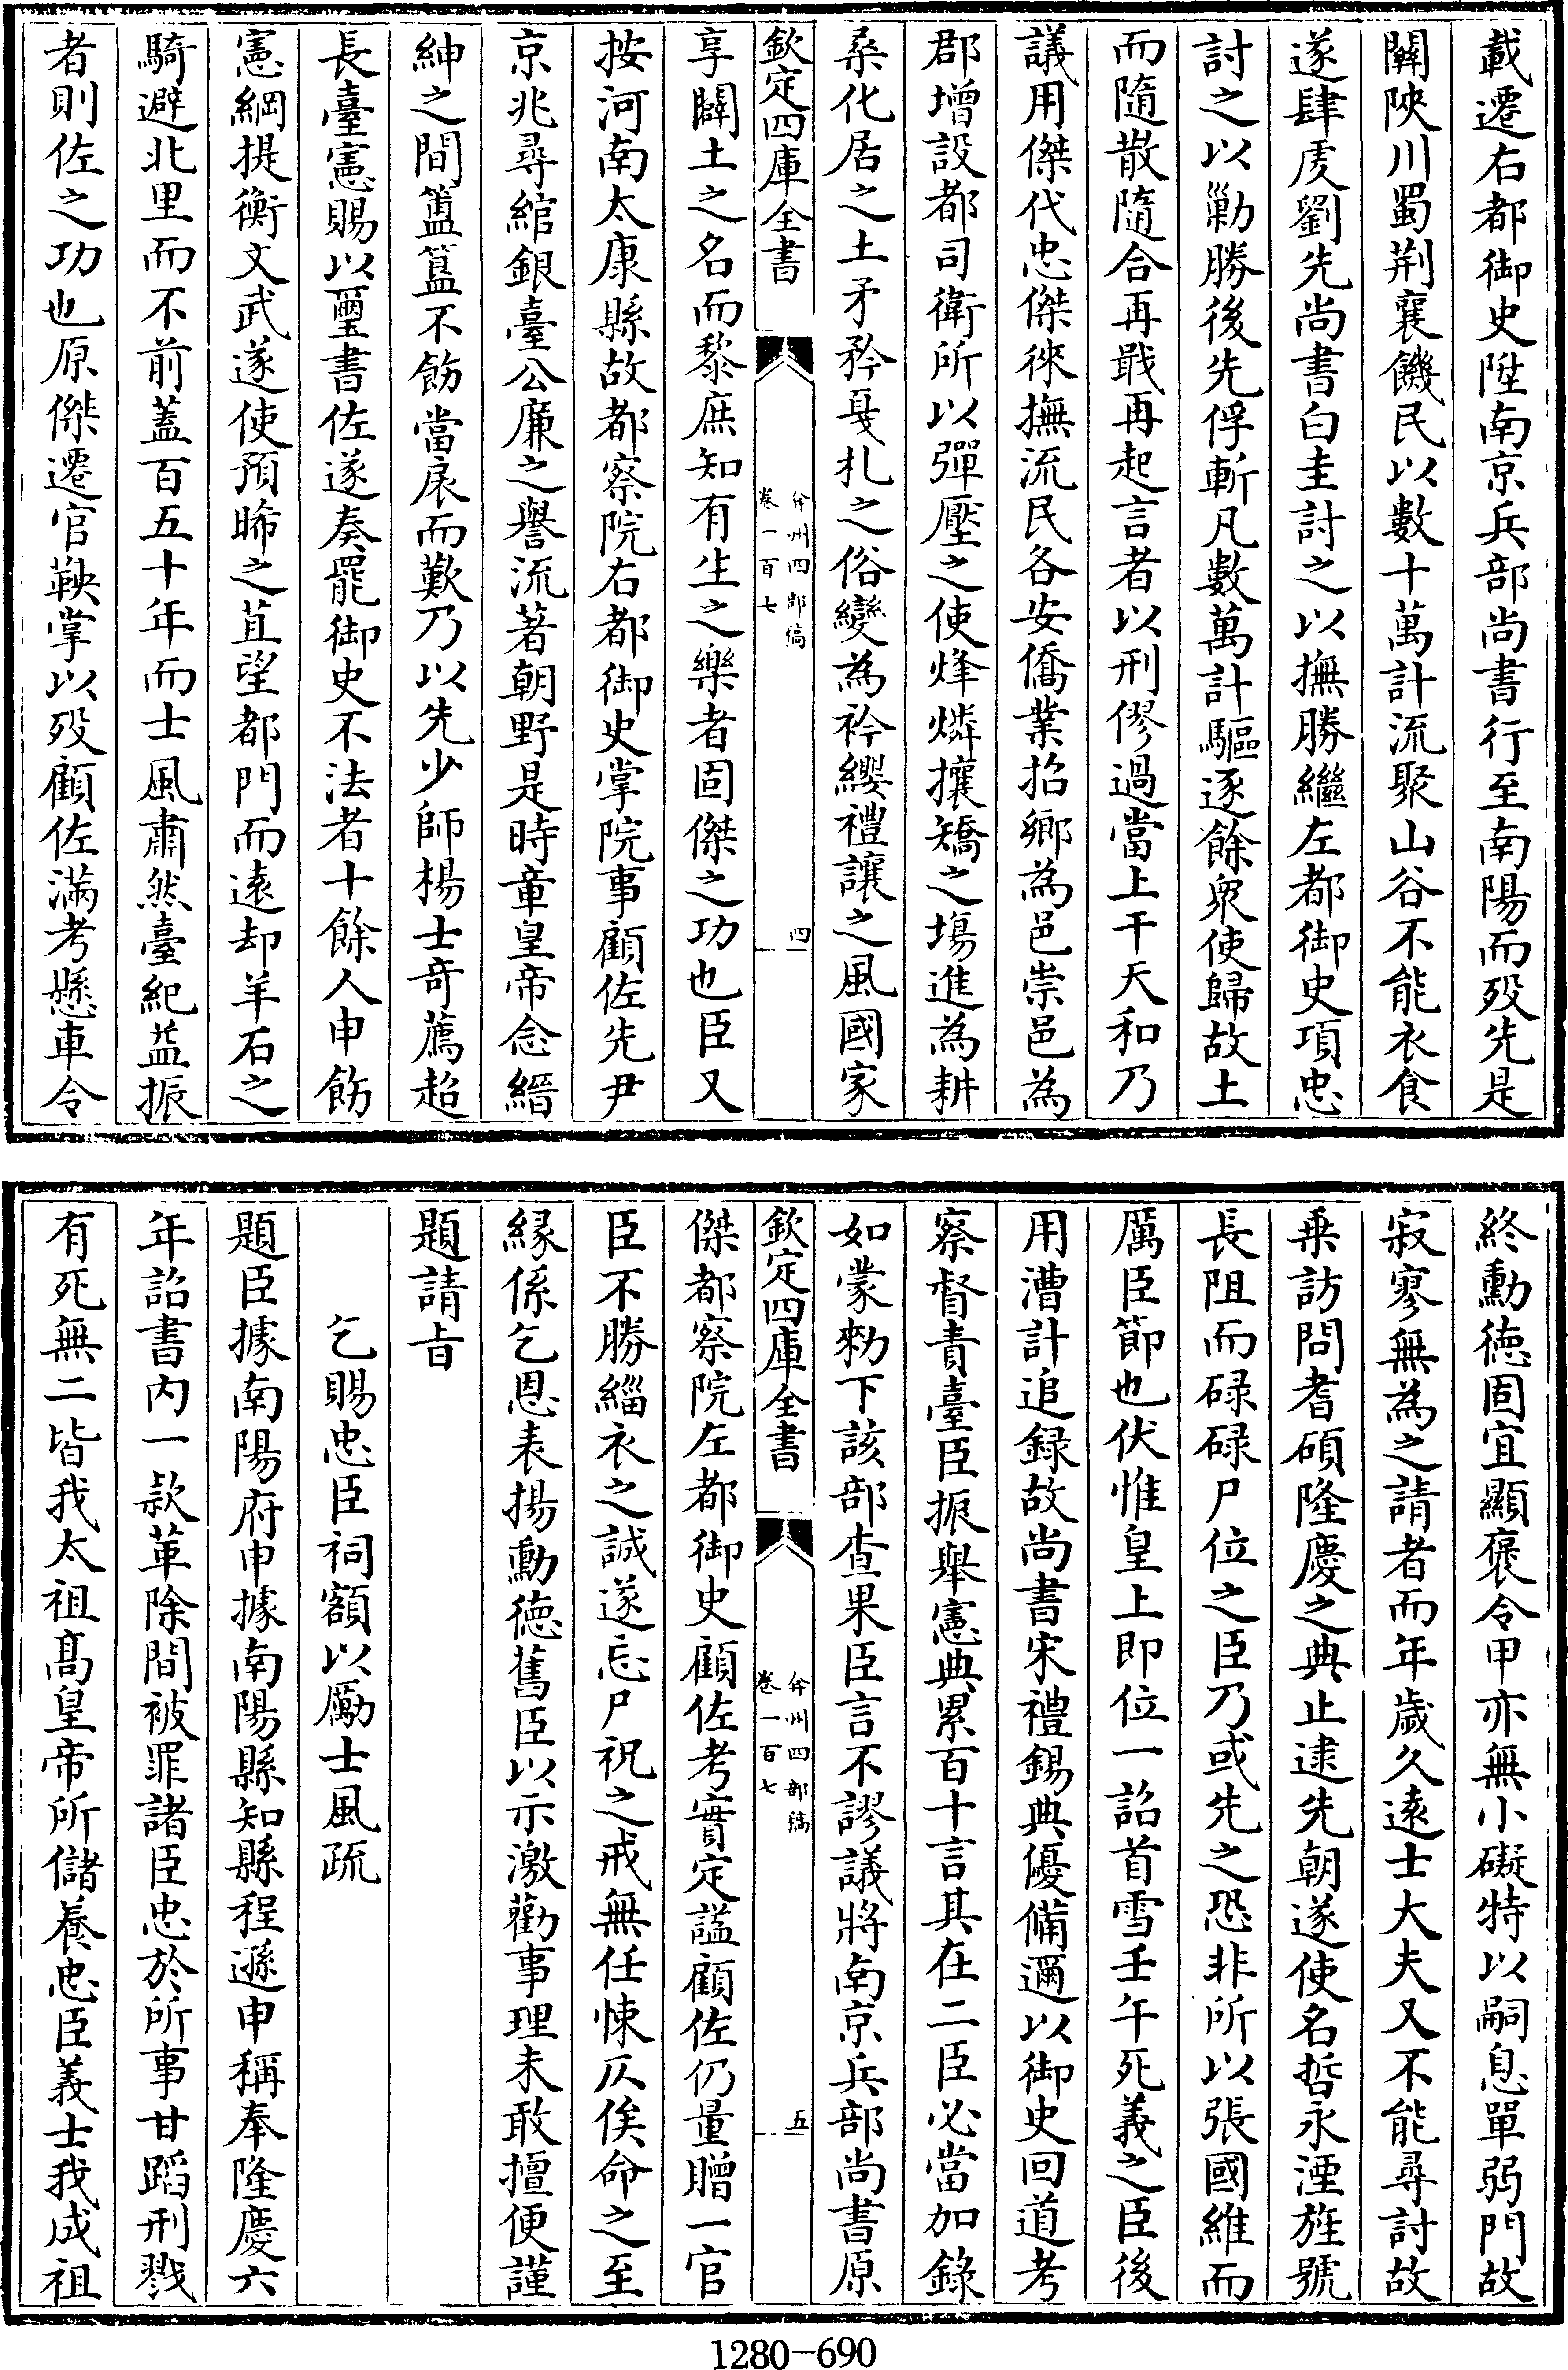 載遷右都御史陞南京兵部尚書行至南陽而歿先是
關陜川蜀荆襄饑民以數十萬計流聚山谷不能衣食
遂肆虔劉先尚書白圭討之以撫勝繼左都御史項忠
討之以勦勝後先俘斬凡數萬計驅逐餘衆使歸故土
而隨散隨合再戢再起言者以刑僇過當上干天和乃
議用傑代忠傑徠撫流民各安僑業招鄉為邑崇邑為
郡增設都司衛所以彈壓之使烽燐攘矯之場進為耕
桑化居之土矛矜戛札之俗變為衿纓禮讓之風國家
欽定四庫全書
弇州四部稿
卷一百七
四
享闢土之名而黎庶知有生之樂者固傑之功也臣又
按河南太康縣故都察院右都御史掌院事顧佐先尹
京兆尋綰銀臺公廉之譽流著朝野是時章皇帝念縉
紳之間簠簋不飭當扆而歎乃以先少師楊士竒薦超
長臺憲賜以璽書佐遂奏罷御史不法者十餘人申飭
憲綱提衡文武遂使預晞之苴望都門而逺却羊石之
騎避北里而不前蓋百五十年而士風肅然臺紀益振
者則佐之功也原傑遷官鞅掌以歿顧佐滿考懸車令
終勳徳固宜顯褒令甲亦無小礙特以嗣息單弱門故
寂寥無為之請者而年歲久逺士大夫又不能尋討故
乗訪問耆碩隆慶之典止逮先朝遂使名哲永湮旌號
長阻而碌碌尸位之臣乃或先之恐非所以張國維而
厲臣節也伏惟皇上即位一詔首雪壬午死義之臣後
用漕計追録故尚書宋禮錫典優備邇以御史回道考
察督責臺臣振舉憲典累百十言其在二臣必當加錄
如蒙勑下該部查果臣言不謬議將南京兵部尚書原
欽定四庫全書
弇州四部稿
卷一百七
五
傑都察院左都御史顧佐考實定諡顧佐仍量贈一官
臣不勝緇衣之誠遂忘尸祝之戒無任悚仄俟命之至
緣係乞恩表揚勳徳舊臣以示激勸事理未敢擅便謹
題請㫖
乞賜忠臣祠額以勵士風疏
題臣據南陽府申據南陽縣知縣程遜申稱奉隆慶六
年詔書内一款革除間被罪諸臣忠於所事甘蹈刑戮
有死無二皆我太祖髙皇帝所儲養忠臣義士我成祖
1280-690